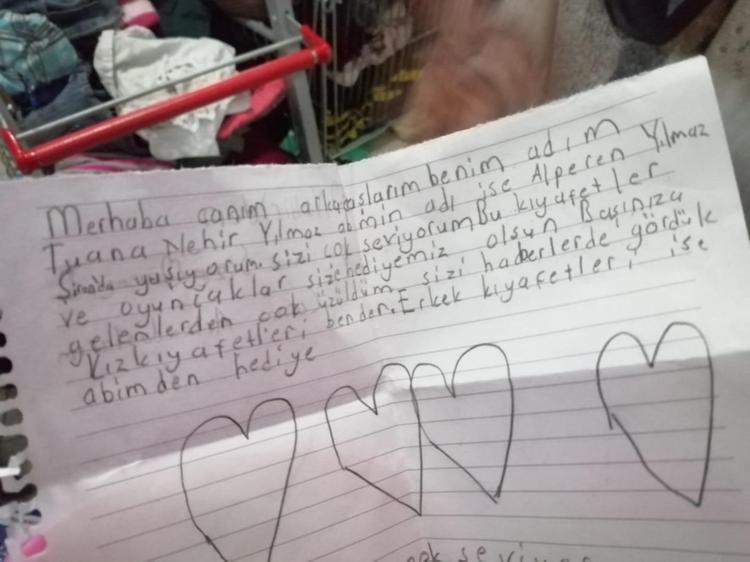 Merhaba canım arkadaşlarım benim adım
Tuana Nehir Yılmaz abimin adı ise Alperen Yılmaz
yaşıyorum. sizi çok seviyorum Bu kıyafetler
ve oyuncaklar size hediyemiz olsun Başınıza
gelenlerden çok üzüldüm sizi haberlerde gördük
Kız kıyafetleri benden. Erkek kıyafetleri ise
abimden hediye
çok